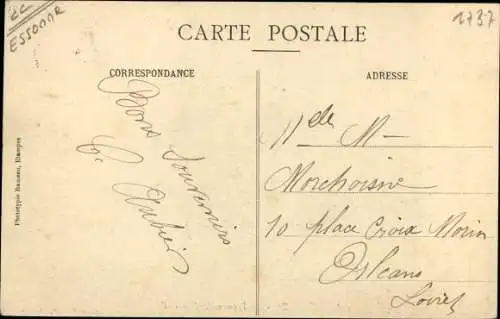 EC
ESSONNE
1737
CARTE POSTALE
CORRESPONDANCE
ADRESSE
Bons Souvenirs
G. Aubier
Mlle M
Morchoisne
10 place Croix Morin
Orléans
Loiret
Phototypie Rameau, Etampes